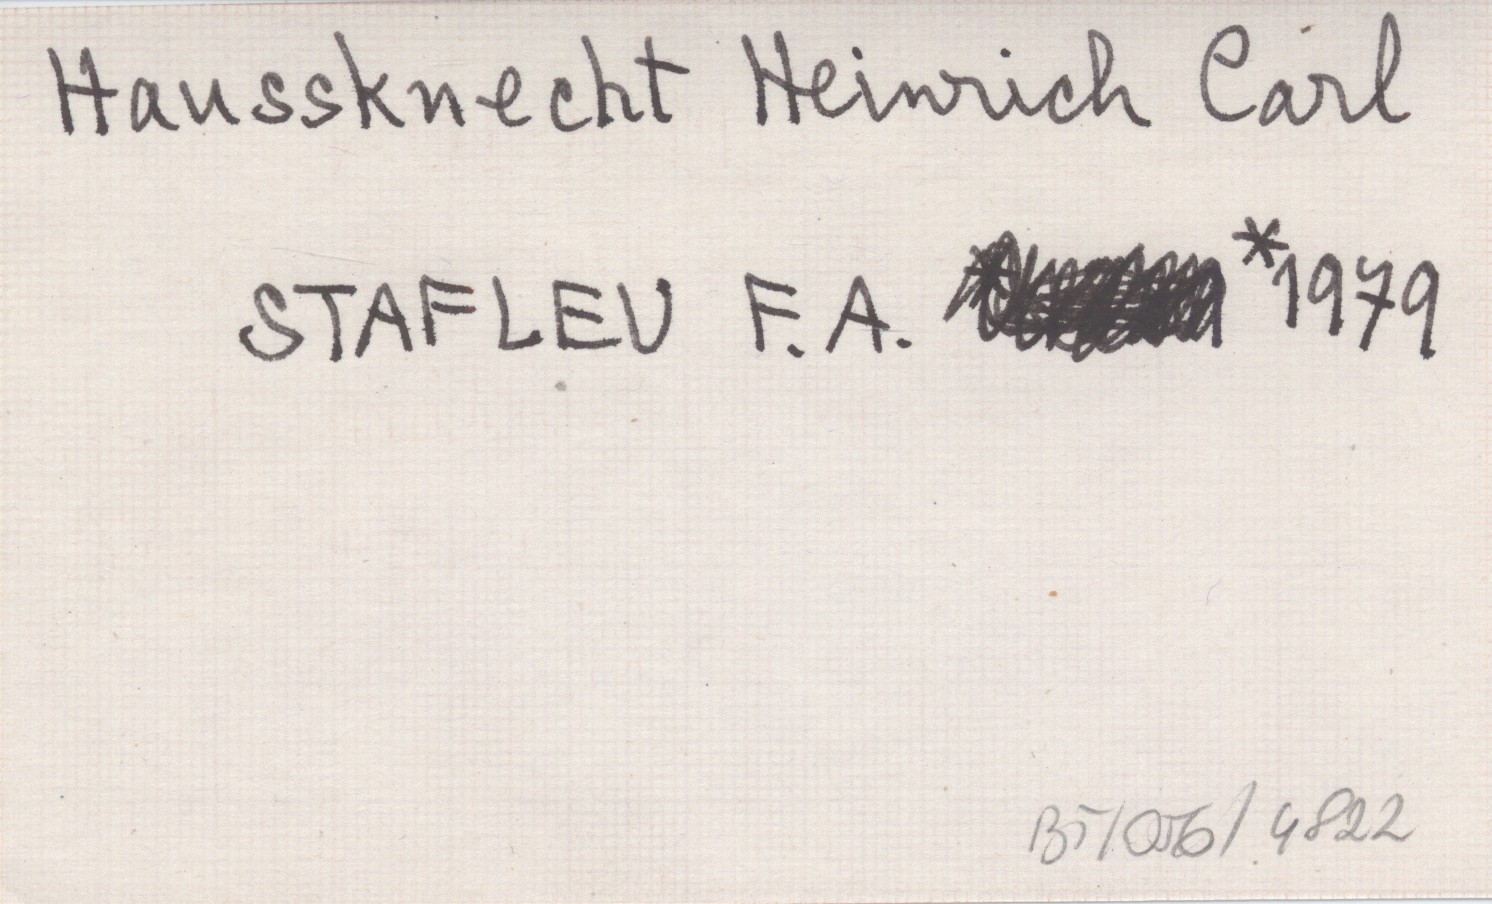 Haussknecht Heinrich Carl
STAFLEU F.A. *1979
4822